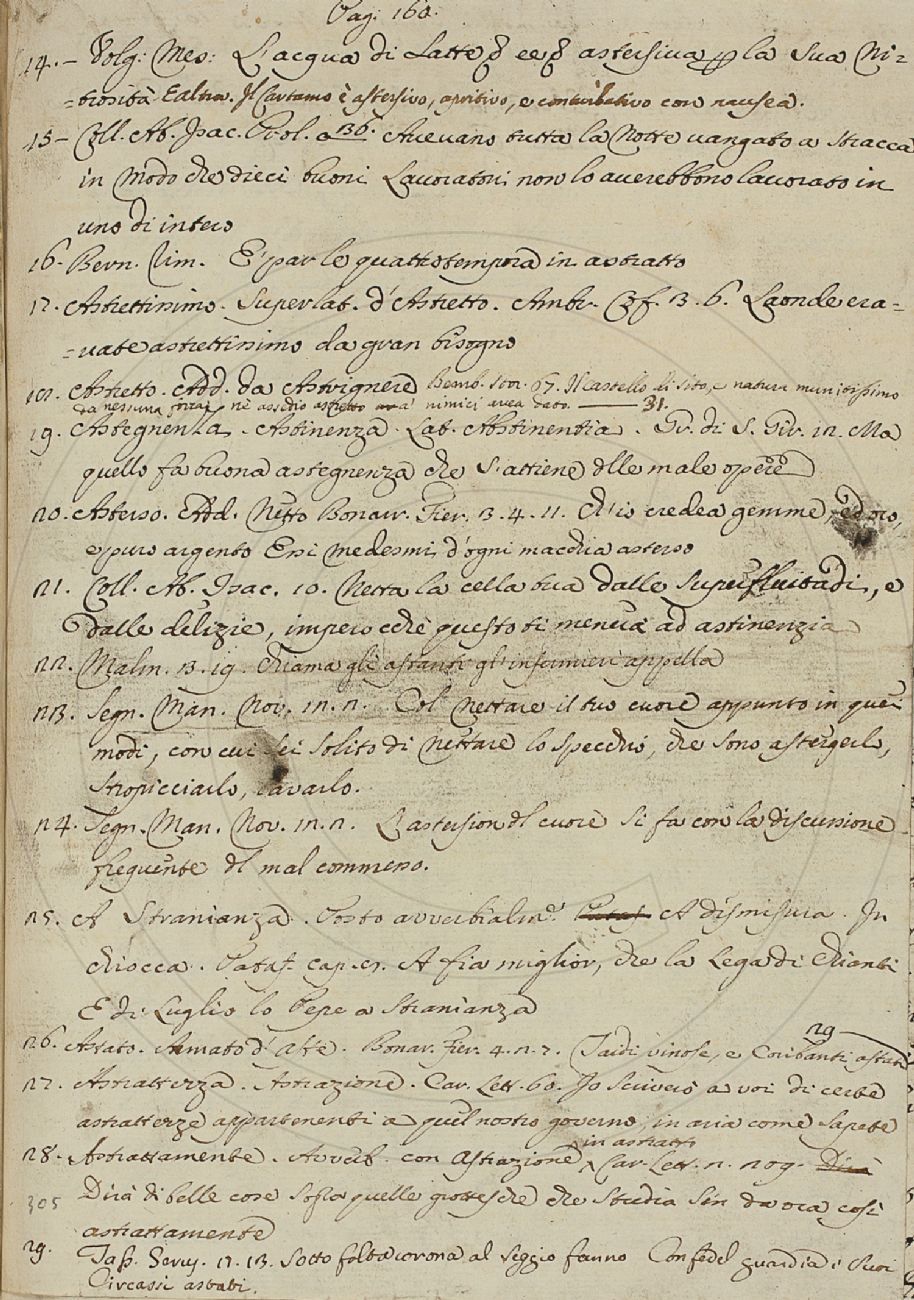 Pag: 160.
14. - Volg: Mes: L'acqua di Latte è astersiva la sua Ni-
=trosità E altra. Il Cartamo è astersivo, apritivo, e conturbativo con nausea.
15 - Coll. Ab. Isac. Prol. a 136. Avevano tutta la Notte vangato a stracca
in modo che dieci buoni Lavoratori non lo averebbono lavorato in
uno dì intero
16. Bern. Rim. E' par le quattrotempora in astratto
17. Astrettissimo. Superlat. d'Astretto. Ambr. Cof. 3. 6. Laonde era=
=vate astrettissimo da gran bisogno
Astretto. Add. da Astrignere Bemb. stor. 67. Il Castello di sito, e natura munitissimo
da nessuna forza, nè assedio astretto a' nimici avea dato. 31.
19. Astegnenza. Astinenza. Lat. Abstinentia. Gr. di S. Gir. 12. Ma
quello fa buona astegnenza che s'attiene dlle male opere
20. Asterso. Add. Netto Bonarr. Fier. 3. 4. 11. Ch'io credea gemme, ed oro,
e puro argento Essi medesmi d'ogni macchia asterso
21. Coll. Ab. Isac. 10. Netta la cella tua dalle superfluitadi, e
dalle delizie, imperocchè questo ti menerà ad astinenzia
22. Malm. 3. 19. Chiama gli astanti gl'infermieri appella
23. Segn. Man. Nov. 12. 2. Col nettare il tuo cuore appunto in quei
modi, con cui sei solito di nettare lo specchio, che sono astergerlo,
stropicciarlo, lavarlo.
24. Segn. Man. Nov. 12. 2. L'astersion dl cuore si fa con la discussione
frequente dl mal commesso.
25. A Stranianza. Posto avverbialm.e A dismisura. In
chiocca. Pataf. cap. A fia miglior, che la Lega di Chianti
E di Luglio lo Pepe a stranianza
26. Astato. Armato d'Aste. Bonar. Fier. 4. 2. 7. Taidi vinose, e Coribanti astati 29
27. Astrattezza. Astrazione. Car. Lett. 60. Io scriverò a voi di certe
astrattezze appartenenti a quel nostro governo in aria come sapete
28. Astrattamente. Avverb. con Astrazione, in astratto Car. Lett. 2. 209. Dirà
305 Dirà di belle cose sopra quelle grottesche che studia sin da ora così
astrattamente
29. Tass. Gerus. 17. 13. Sotto folta corona al seggio fanno Con fedel guardia i suoi
Circassi astati.